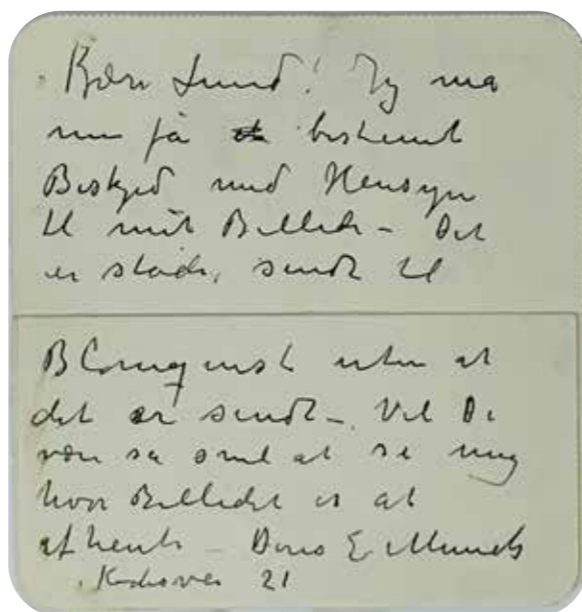 Kære Lund! Jeg må
nu få bestemt
Beskjed med Hensyn
til mit Billede – Det
er stadig sendt til
Blomqvist uten at
det er sendt – Vil De
være så snil at si mig
hvor Billedet er at
afhente – Deres E Munch
21